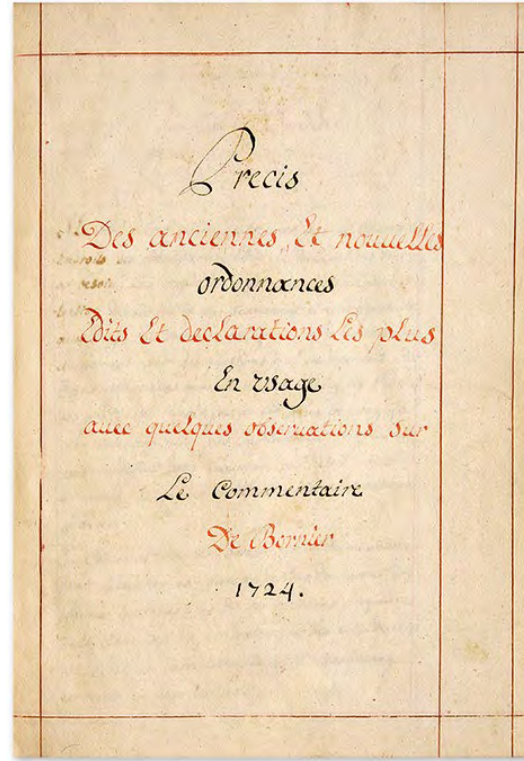 Precis
Des anciennes, Et nouuelles
ordonnances
Edits Et declarations Les plus
En vsage
auec quelques obseruations sur
Le Commentaire
De Bornier
1724.